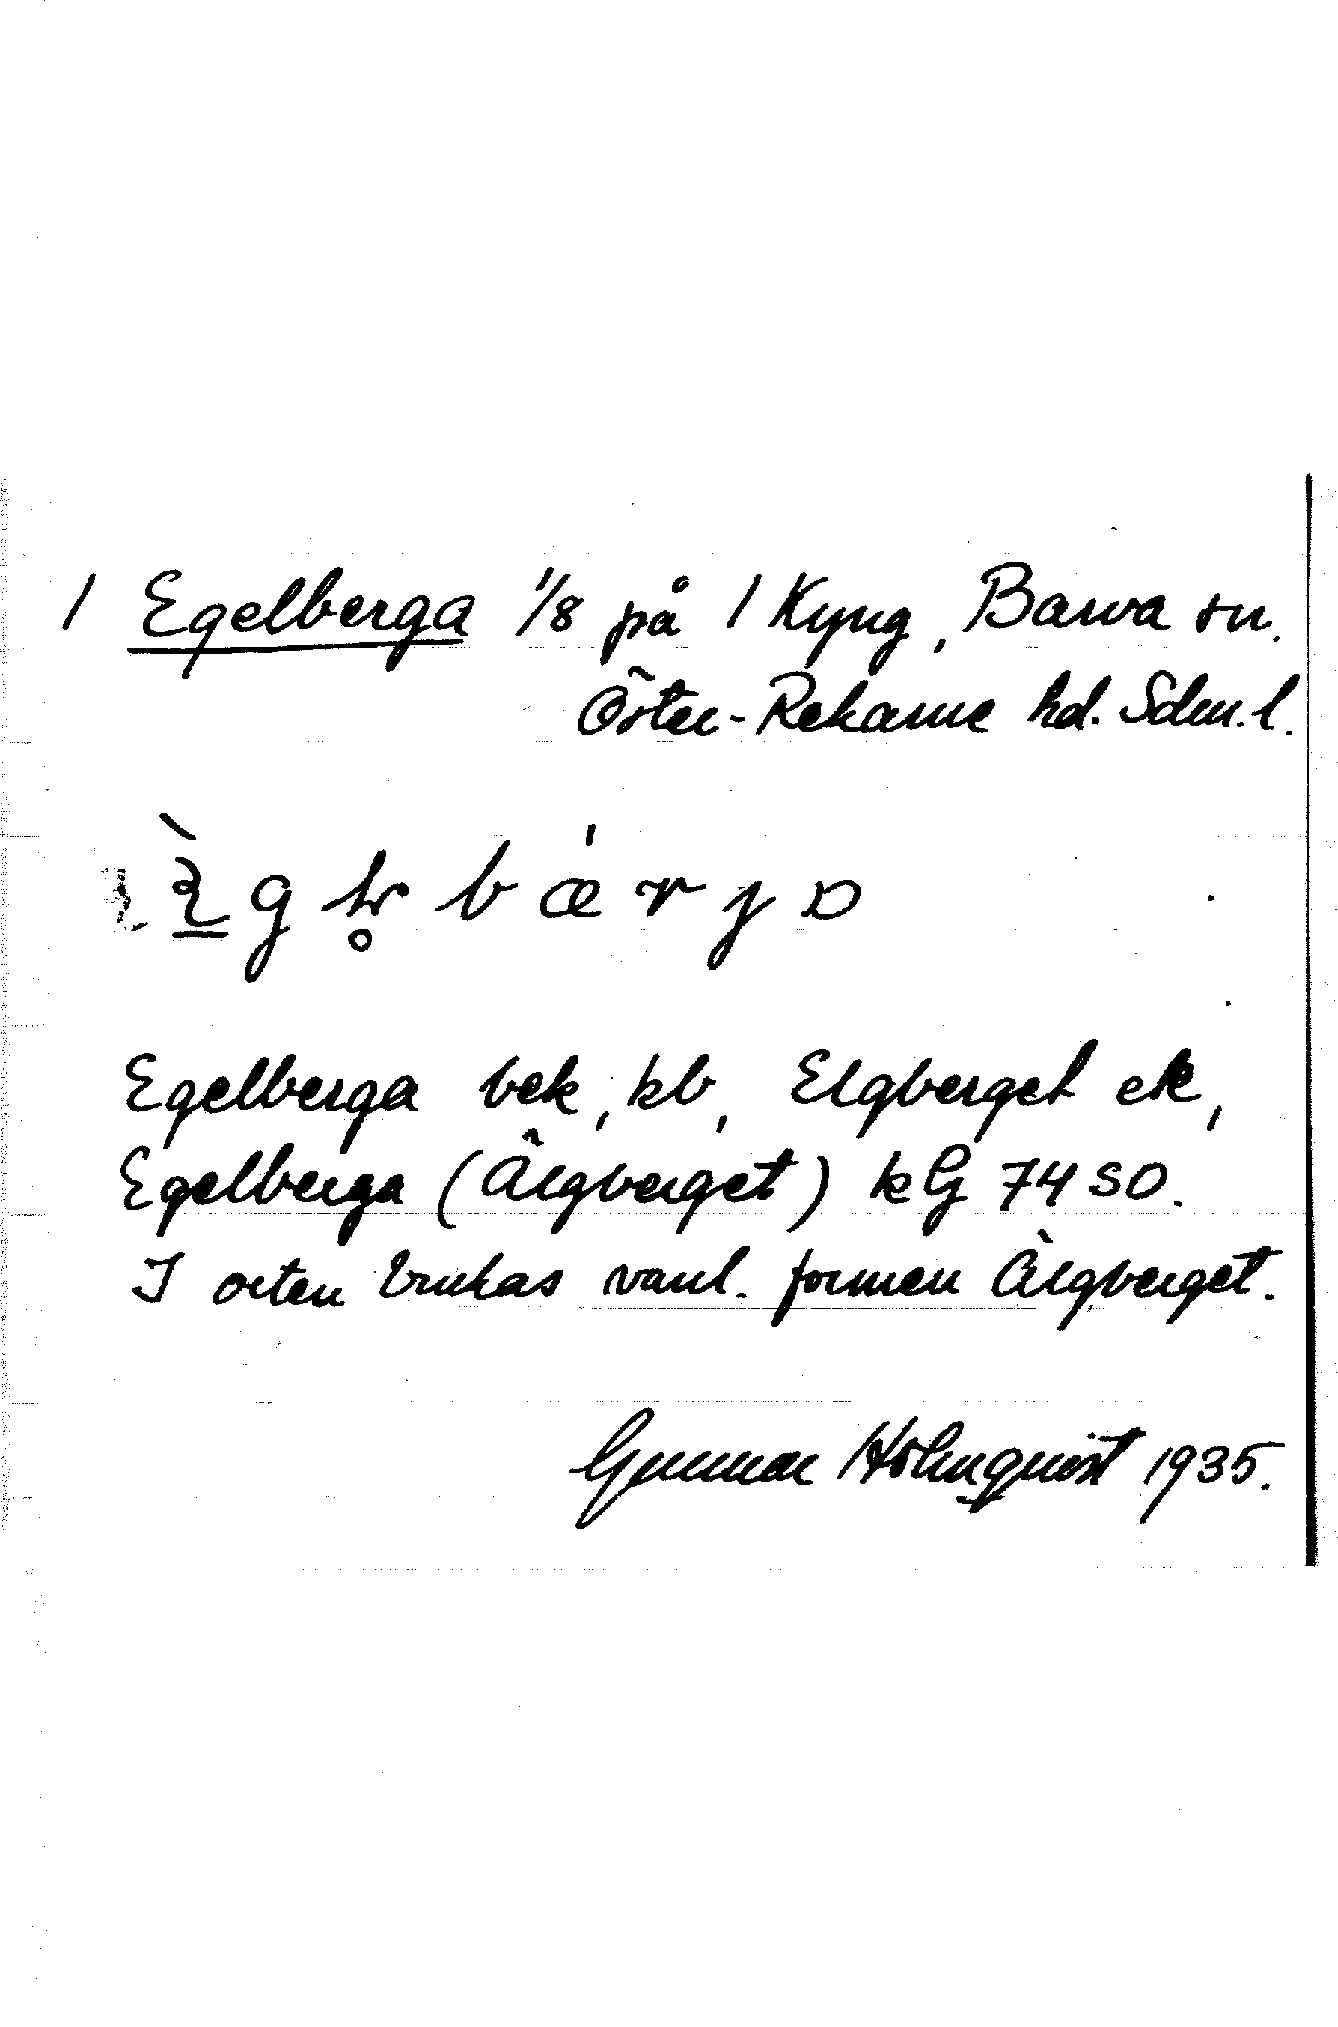 1 Egelberga 1/8 på 1 Kyng, Barva sn.
Öster-Rekarne hd. Sdm. l.
Egelberga bek, kb, Elgberget ek,
Egelberga (Älgberget) kG 74 SO.
I orten brukas vanl. formen Älgberget.
Gunnar Holmquist 1935.